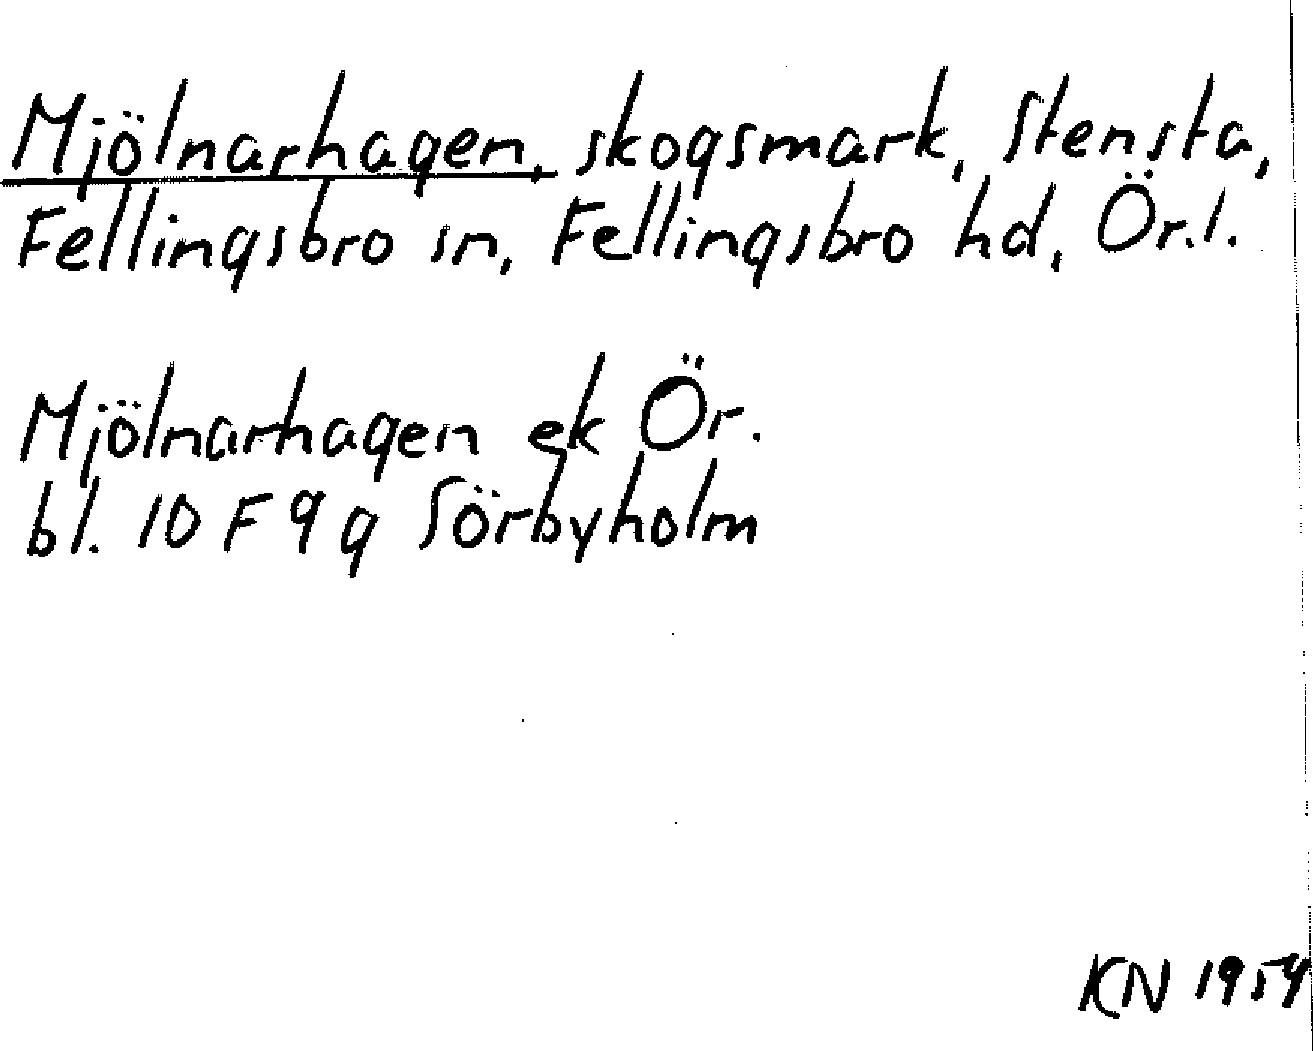 Mjölnarhagen, skogsmark, Stensta,
Fellingsbro sn, Fellingsbro hd, Ör.l.
Mjölnarhagen ek Ör.
bl. 10 F 9 g Sörbyholm
KN 1954